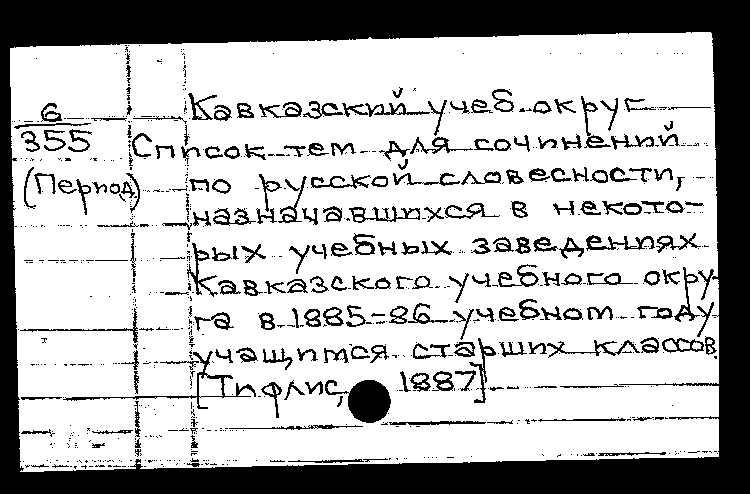 6
355
(Период)
Кавказский учеб. округ
Список тем для сочинений
по русской словесности,
назначавшихся в некото-
рых учебных заведениях
Кавказского учебного окру-
га в 1885-86 учебном году
учащимся старших классов.
[Тифлис, 1887].